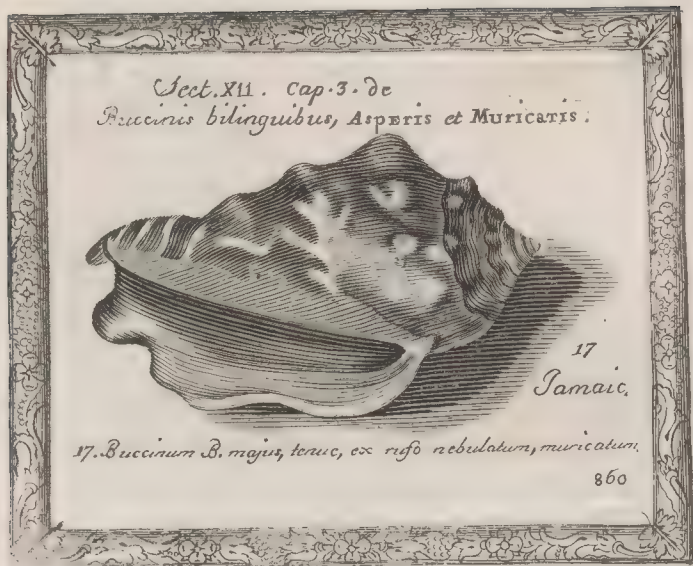 Sect. XII. Cap. 3. de
Buccinis bilinguibus, Asperis et Muricatis.
17
Jamaic.
17. Buccinum B. majus, tenue, ex rufo nebulatum, muricatum.
860